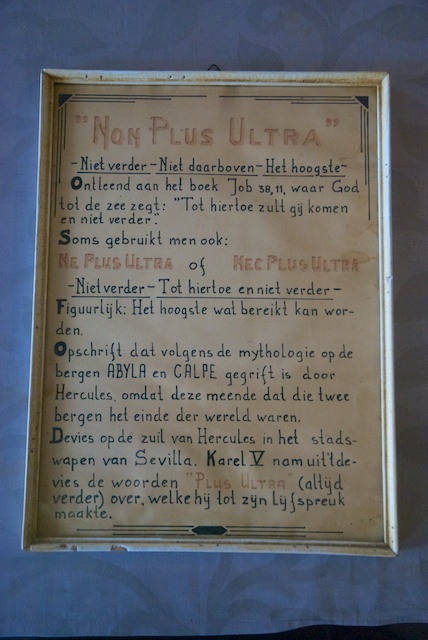 "Non Plus Ultra"
-Niet verder-Niet daarboven-Het hoogste-
Ontleend aan het boek Job 38,11, waar God
tot de zee zegt: "Tot hiertoe zult gij komen
en niet verder".
Soms gebruikt men ook:
Ne Plus Ultra of Nec Plus Ultra
-Niet verder- Tot hiertoe en niet verder-
Figuurlijk: Het hoogste wat bereikt kan wor-
den.
Opschrift dat volgens de mythologie op de
bergen ABYLA en CALPE gegrift is door
Hercules, omdat deze meende dat die twee
bergen het einde der wereld waren.
Devies op de zuil van Hercules in het stads-
wapen van Sevilla. Karel V nam uit 't de-
vies de woorden "Plus Ultra" (altijd
verder) over, welke hij tot zijn Lijfspreuk
maakte.